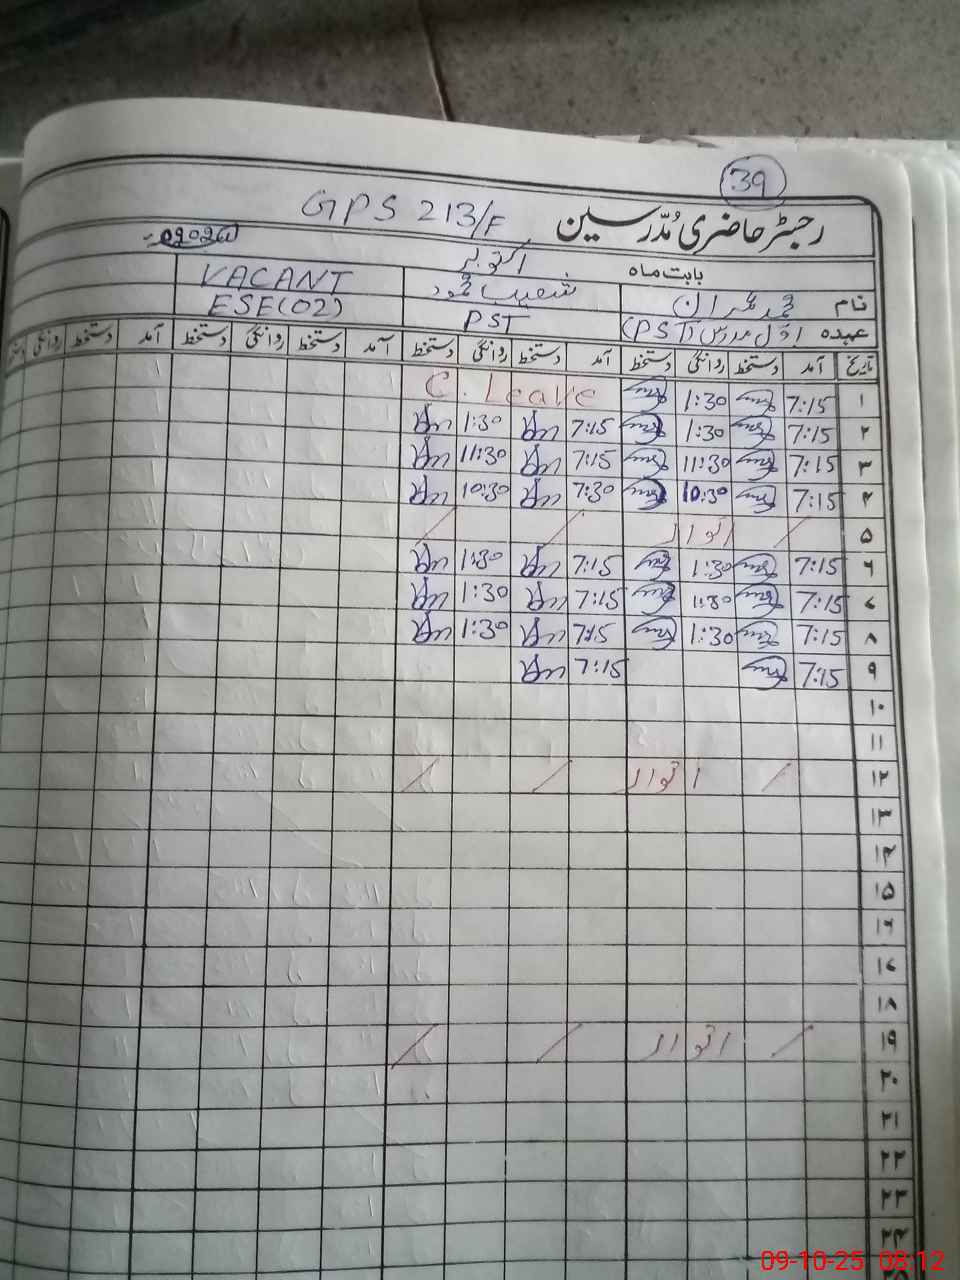 39
GPS 213/F
رجسٹر حاضری مُدرسین
بابت ماہ اکتوبر 2025ء
نام محمد عمران شعیب محمود VACANT
عہدہ اوّل مدرس (PST) PST ESE(02)
تاریخ آمد دستخط روانگی دستخط آمد دستخط روانگی دستخط آمد دستخط روانگی دستخط آمد دستخط روانگی دستخط
۱ 7:15 1:30 C. Leave
۲ 7:15 1:30 7:15 1:30
۳ 7:15 11:30 7:15 11:30
۴ 7:15 10:30 7:30 10:30
۵ / اتوار / /
۶ 7:15 1:30 7:15 1:30
۷ 7:15 1:30 7:15 1:30
۸ 7:15 1:30 7:15 1:30
۹ 7:15 7:15
۱۰
۱۱
۱۲ / اتوار / /
۱۳
۱۴
۱۵
۱۶
۱۷
۱۸
۱۹ / اتوار / /
۲۰
۲۱
۲۲
۲۳
۲۴
09-10-25 08:12